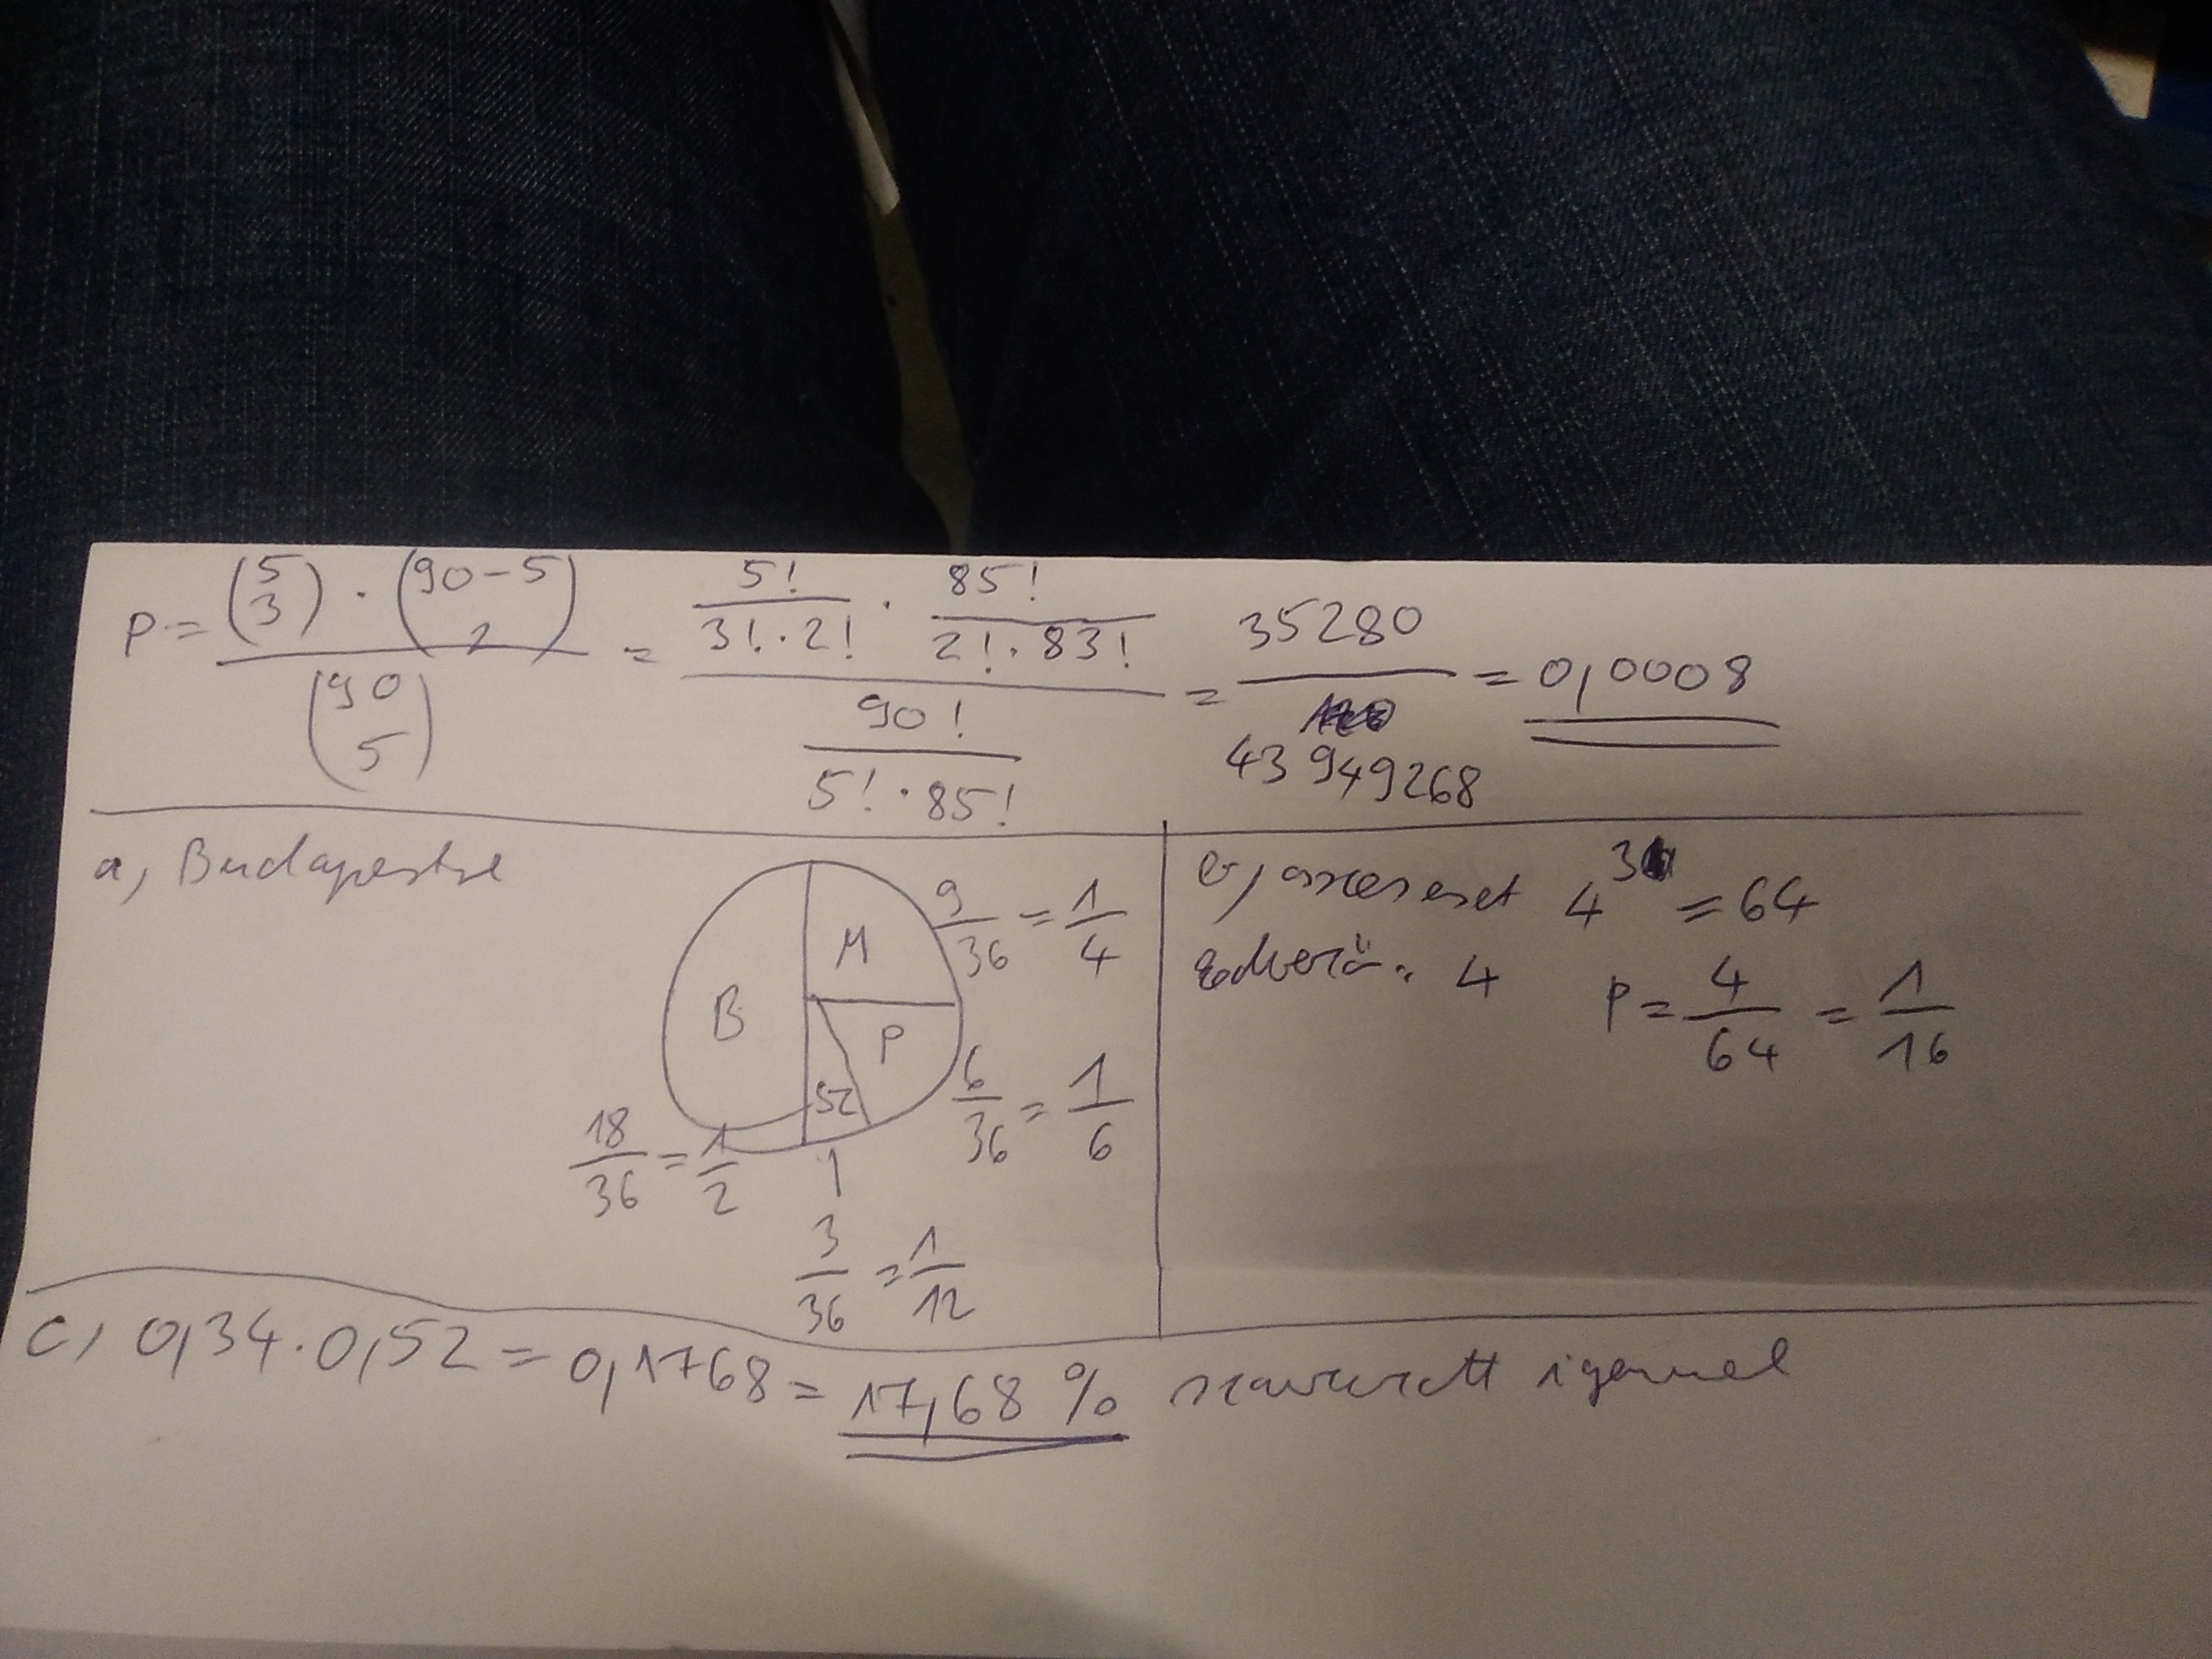 p = (5 3) · (90-5 2) / (90 5) = 5!/(3!·2!) · 85!/(2!·83!) / (90!/(5!·85!)) = 35280/43949268 = 0,0008
a, Budapestre
B M P SZ
9/36 = 1/4
6/36 = 1/6
18/36 = 1/2
3/36 = 1/12
b, összes eset 4³ = 64
kedvező: 4 p = 4/64 = 1/16
c, 0,34 · 0,52 = 0,1768 = 17,68 % szavazott igennel